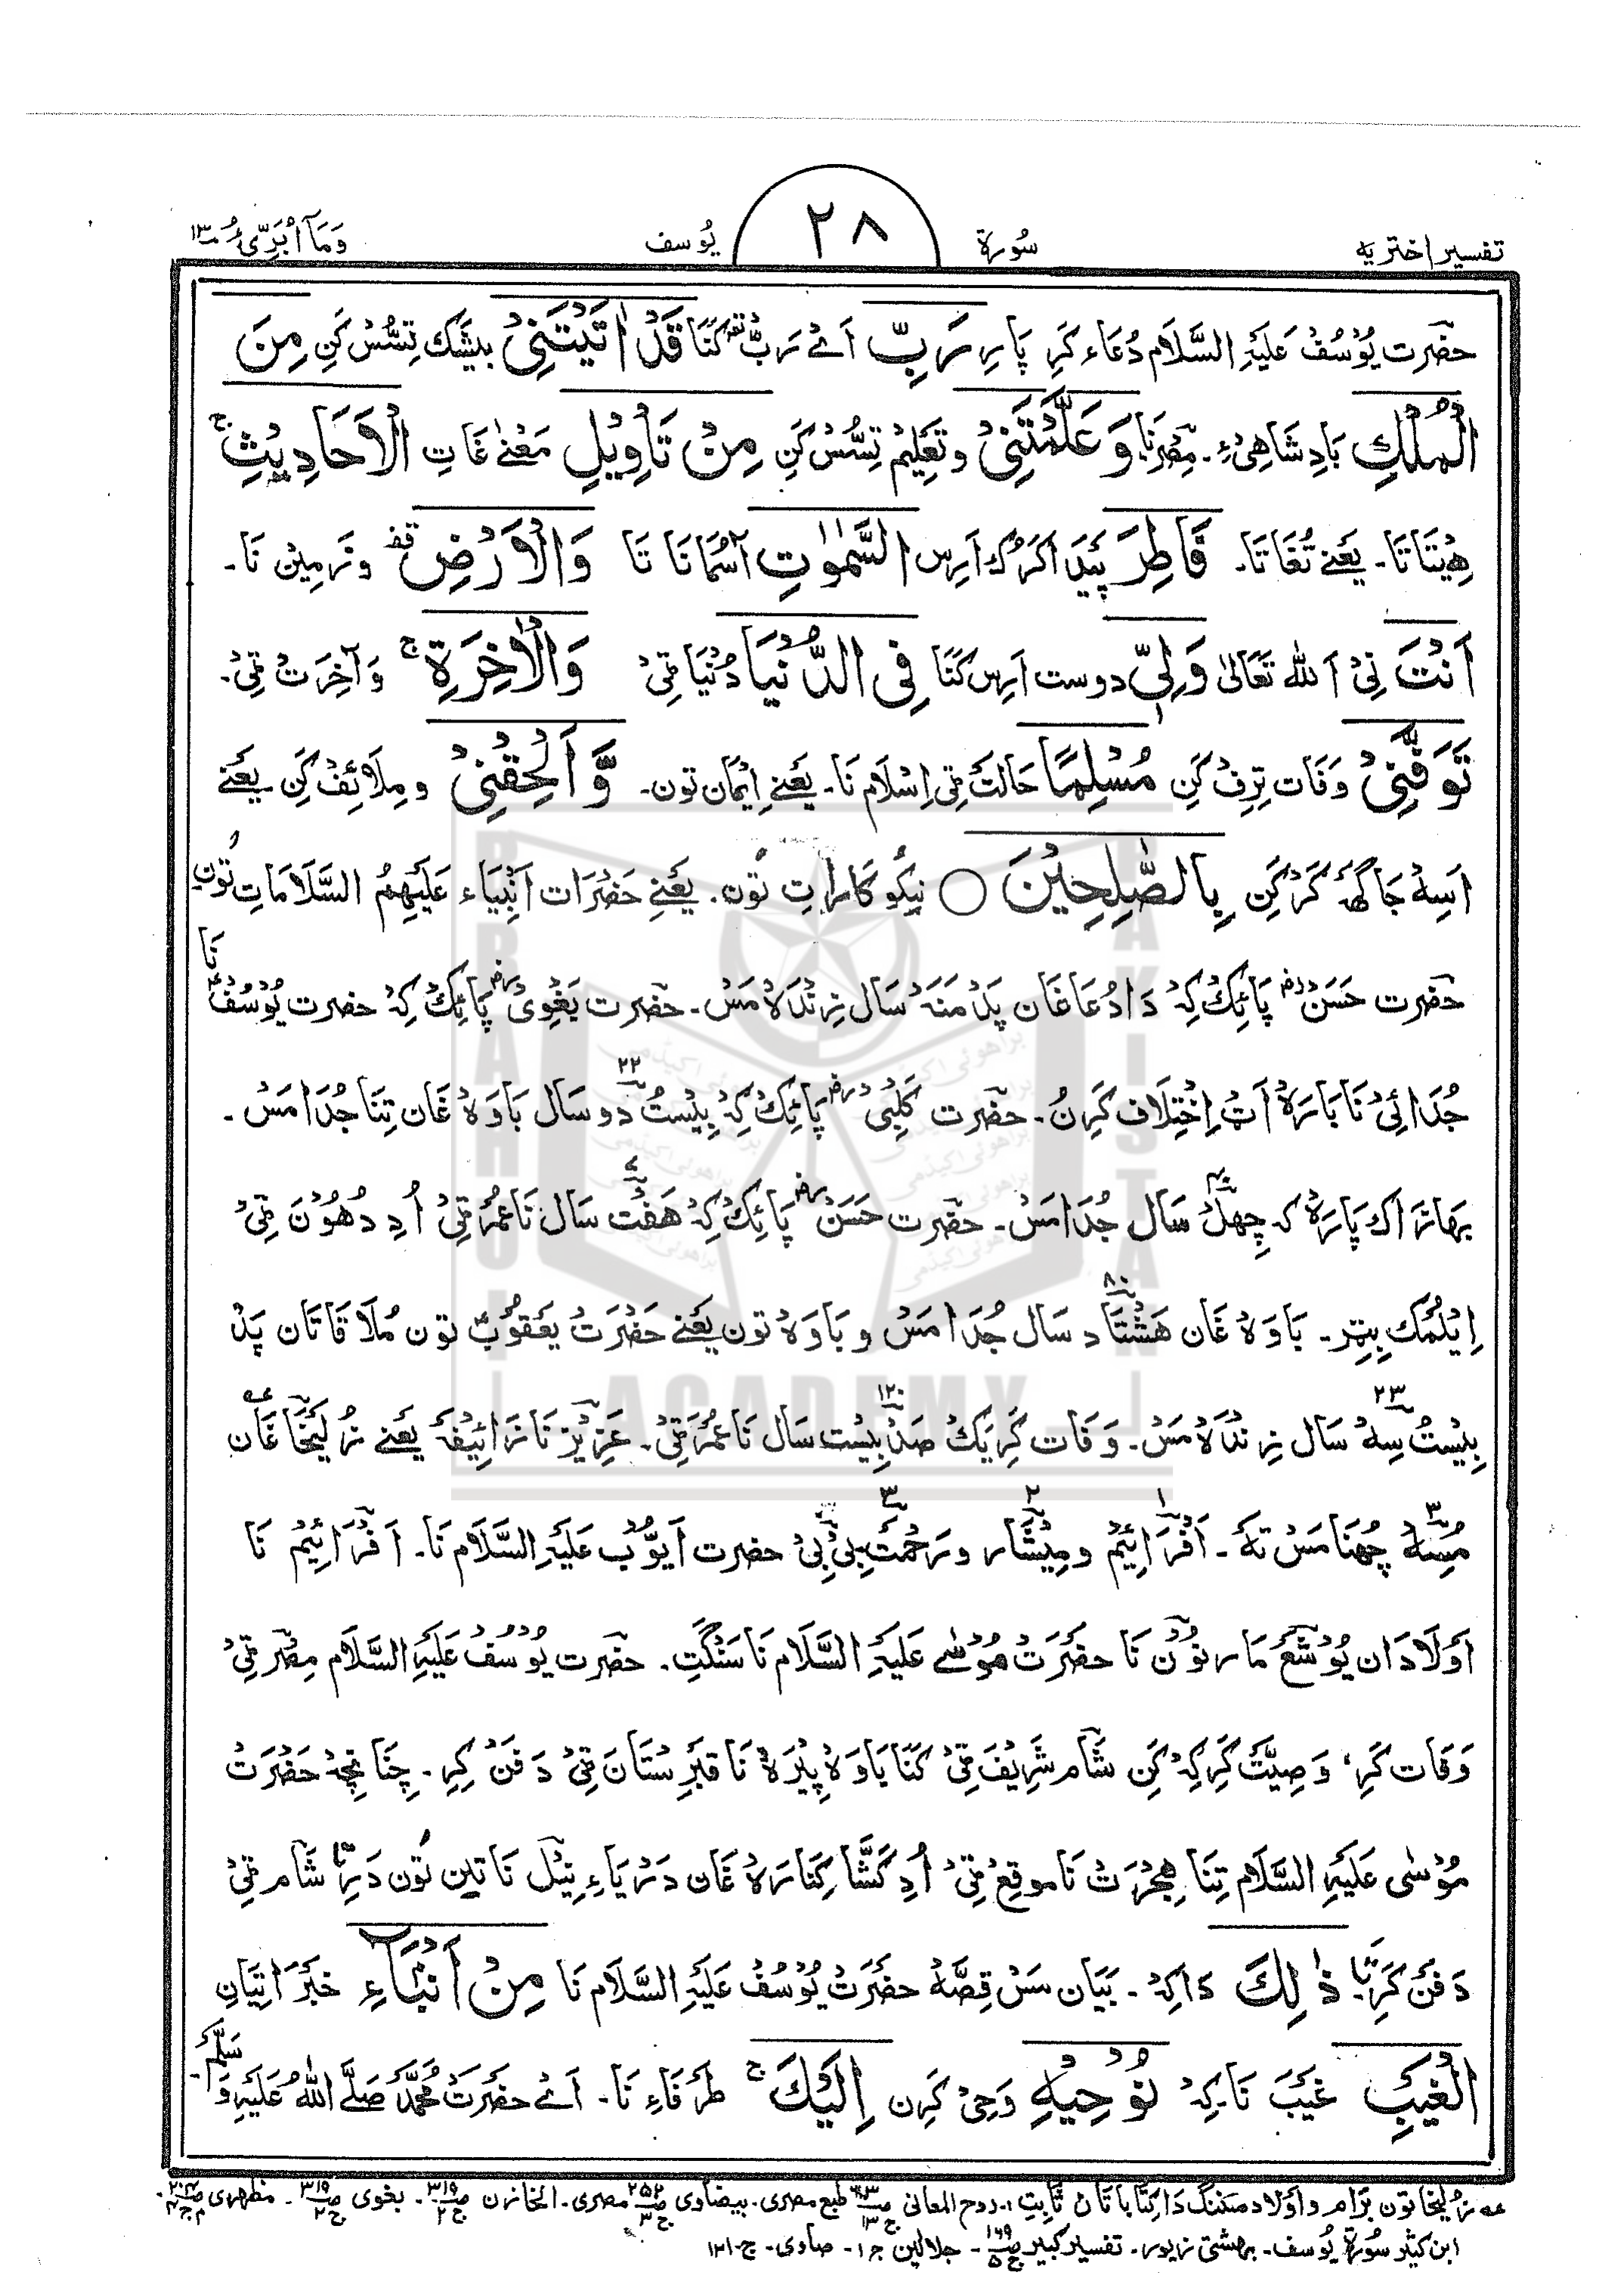 تفسیر اختریه سُورة ٢٨ یُوسف وَمَآ اُبَرِّئُ ١٣
حضرت یُوْسُفْ عَلَیْہِ السَّلَام دُعَاء کَرِ پَارِ رَبِّ اَئے رَبّ کَنَا قَدْ اٰتَیْتَنِیْ بیشَک تِسُّسْ کَنِ مِنَ
الْمُلْكِ بَادِشَاهِیْ ءِ۔ مِصْرنَا وَعَلَّمْتَنِیْ وتَعْلِیْم تِسُّسْ کَنِ مِنْ تَاْوِیْلِ مَعْنےٰ غَاتِ الْاَحَادِیْثِ ج
هِیْتَاتَا۔ یَعْنے تُغَاتَا۔ فَاطِرَ پَیْدَا کَرُك اَرِس السَّمٰوٰتِ آسْمَانَا تَا وَالْاَرْضِ قف وزَمِیْن نَا۔
اَنْتَ نِیْ اَللّٰہ تَعَالیٰ وَلِیّٖ دوست اَرِس کَنَا فِی الدُّنْیَا دُنْیَا ٹِیْ وَالْاٰخِرَةِ ج وَآخِرَتْ ٹِیْ۔
تَوَفَّنِیْ وَفَات تِرِفْ کَنِ مُسْلِمًا حَالَتْ ٹِی اِسْلَام نَا۔ یَعْنے اِیْمَان تون۔ وَّاَلْحِقْنِیْ ومِلَائِفْ کَنِ۔ یَعْنے
اَسِہْ جَاگَہْ کَرْ کَنِ بِالصّٰلِحِیْنَ ○ نیکو کَارَاتِ تُون۔ یَعْنے حَضْرَات اَنْبِیَاء عَلَیْهِمُ السَّلَامَاتِ تُون
حضرت حَسَنْ رض پَائِکْ کِہْ دَا دُعَا غَان پَدْ مَنَہْ سَال زِنْدَہ مَسْ۔ حضرت بَغَوِیْ رض پَائِکْ کِہْ حضرت یُوْسُفْ نَا
جُدَائِیْ نَا بَارَہْ اَٹْ اِخْتِلَاف کَرِنُ۔ حضرت کَلْبِی رض پَائِکْ کِہْ بِیْسْتُ دو سَال ٢٢ بَاوَہْ غَان تِنَا جُدَا مَسْ۔
بَهَازَ اك پَارَہْ کہ چِهِلْ ٤٠ سَال جُدَا مَسْ۔ حضرت حَسَنْ رض پَائِکْ کِہْ هَفْت ٧ سَال نَا عُمْر ٹِیْ اُدِ دُهُوْن ٹِیْ
اِیْلُمْك بِیٹِر۔ بَاوَہْ غَان هَشْتَاد ٨٠ سَال جُدَا مَسْ وبَاوَہْ تون یَعْنے حَضْرَتْ یَعْقُوبْ تون مُلَاقَاتَان پَدْ
بِیْسْتُ سِہْ ٢٣ سَال زِنْدَہ مَسْ۔ وَفَات کَرِیْكْ صَدْ بِیْسْت ١٢٠ سَال نَا عُمْر ٹِیْ۔ عَزِیْز نَا زَائِیْفَہ یَعْنے زُلَیْخَا غَان
مُسِہْ ٣ چُهنَا مَسْ تَہ۔ اَفْرَائِیْم ١ ومِیْشَار ٢ ورَحْمَتْ ٣ بِیْ بِیْ حضرت اَیُّوْب عَلَیْہِ السَّلَام نَا۔ اَفْرَائِیْمْ نَا
اَوْلَادَان یُوْشَعْ مَار نُوْن نَا حضرَتْ مُوْسٰے عَلَیْہِ السَّلَام نَا سَنْگَتِ۔ حضرت یُوْسُفْ عَلَیْہِ السَّلَام مِصْر ٹِیْ
وَفَات کَرِ، وَصِیَّتْ کَرِ کِہْ کَنِ شَام شَرِیْف ٹِیْ کَنَا بَاوَہ پِیْرَہْ نَا قَبْرِسْتَان ٹِیْ دَفَنْ کِرِ۔ چِنَانچِہْ حَضْرَتْ
مُوْسٰی عَلَیْہِ السَّلَام تِنَا هِجْرَتْ نَا موقع ٹِیْ اُدِ کَشَّا کِنَارَہْ غَان دَرْیَاءِ نِیْل نَا تین تُون دَرِّا شَام ٹِیْ
دَفَنْ کَرِّا ذٰلِكَ دَا کِہْ۔ بَیَان مَسْ قِصَّہْ حضرَتْ یُوْسُفْ عَلَیْہِ السَّلَام نَا مِنْ اَنْۢبَآءِ خبَرْ اَتِیَانِ
الْغَیْبِ غَیْبَ نَا۔ کِہْ نُوْحِیْهِ وَحِیْ کَرِن اِلَیْكَ ج طَرَفَاءِ نَا۔ اَئے حضرَتْ مُحَمَّدْ صَلَّے اللّٰہُ عَلَیْہِ وَسَلَّمْ۔
عہ زُلیخا تون بَرَام واَوْلَاد مننگ دَا کِتَابَاتَان ثَابِت۔ روح المعانی ج١٣ طبع مصری۔ بیضاوی ص٢٥٢ ج٣ مصری۔ الخازن ص٣١٩ ج٢۔ بغوی ص٣١٩ ج٢۔ مظهری
ابن کثیر سُورَة یُوسف۔ بهشتی زیور۔ تفسیر کبیر ص١٦٩ ج٥۔ جلالین ج١۔ صاوی۔
BRAHUI ACADEMY PAKISTAN
براهوئی اکیڈمی